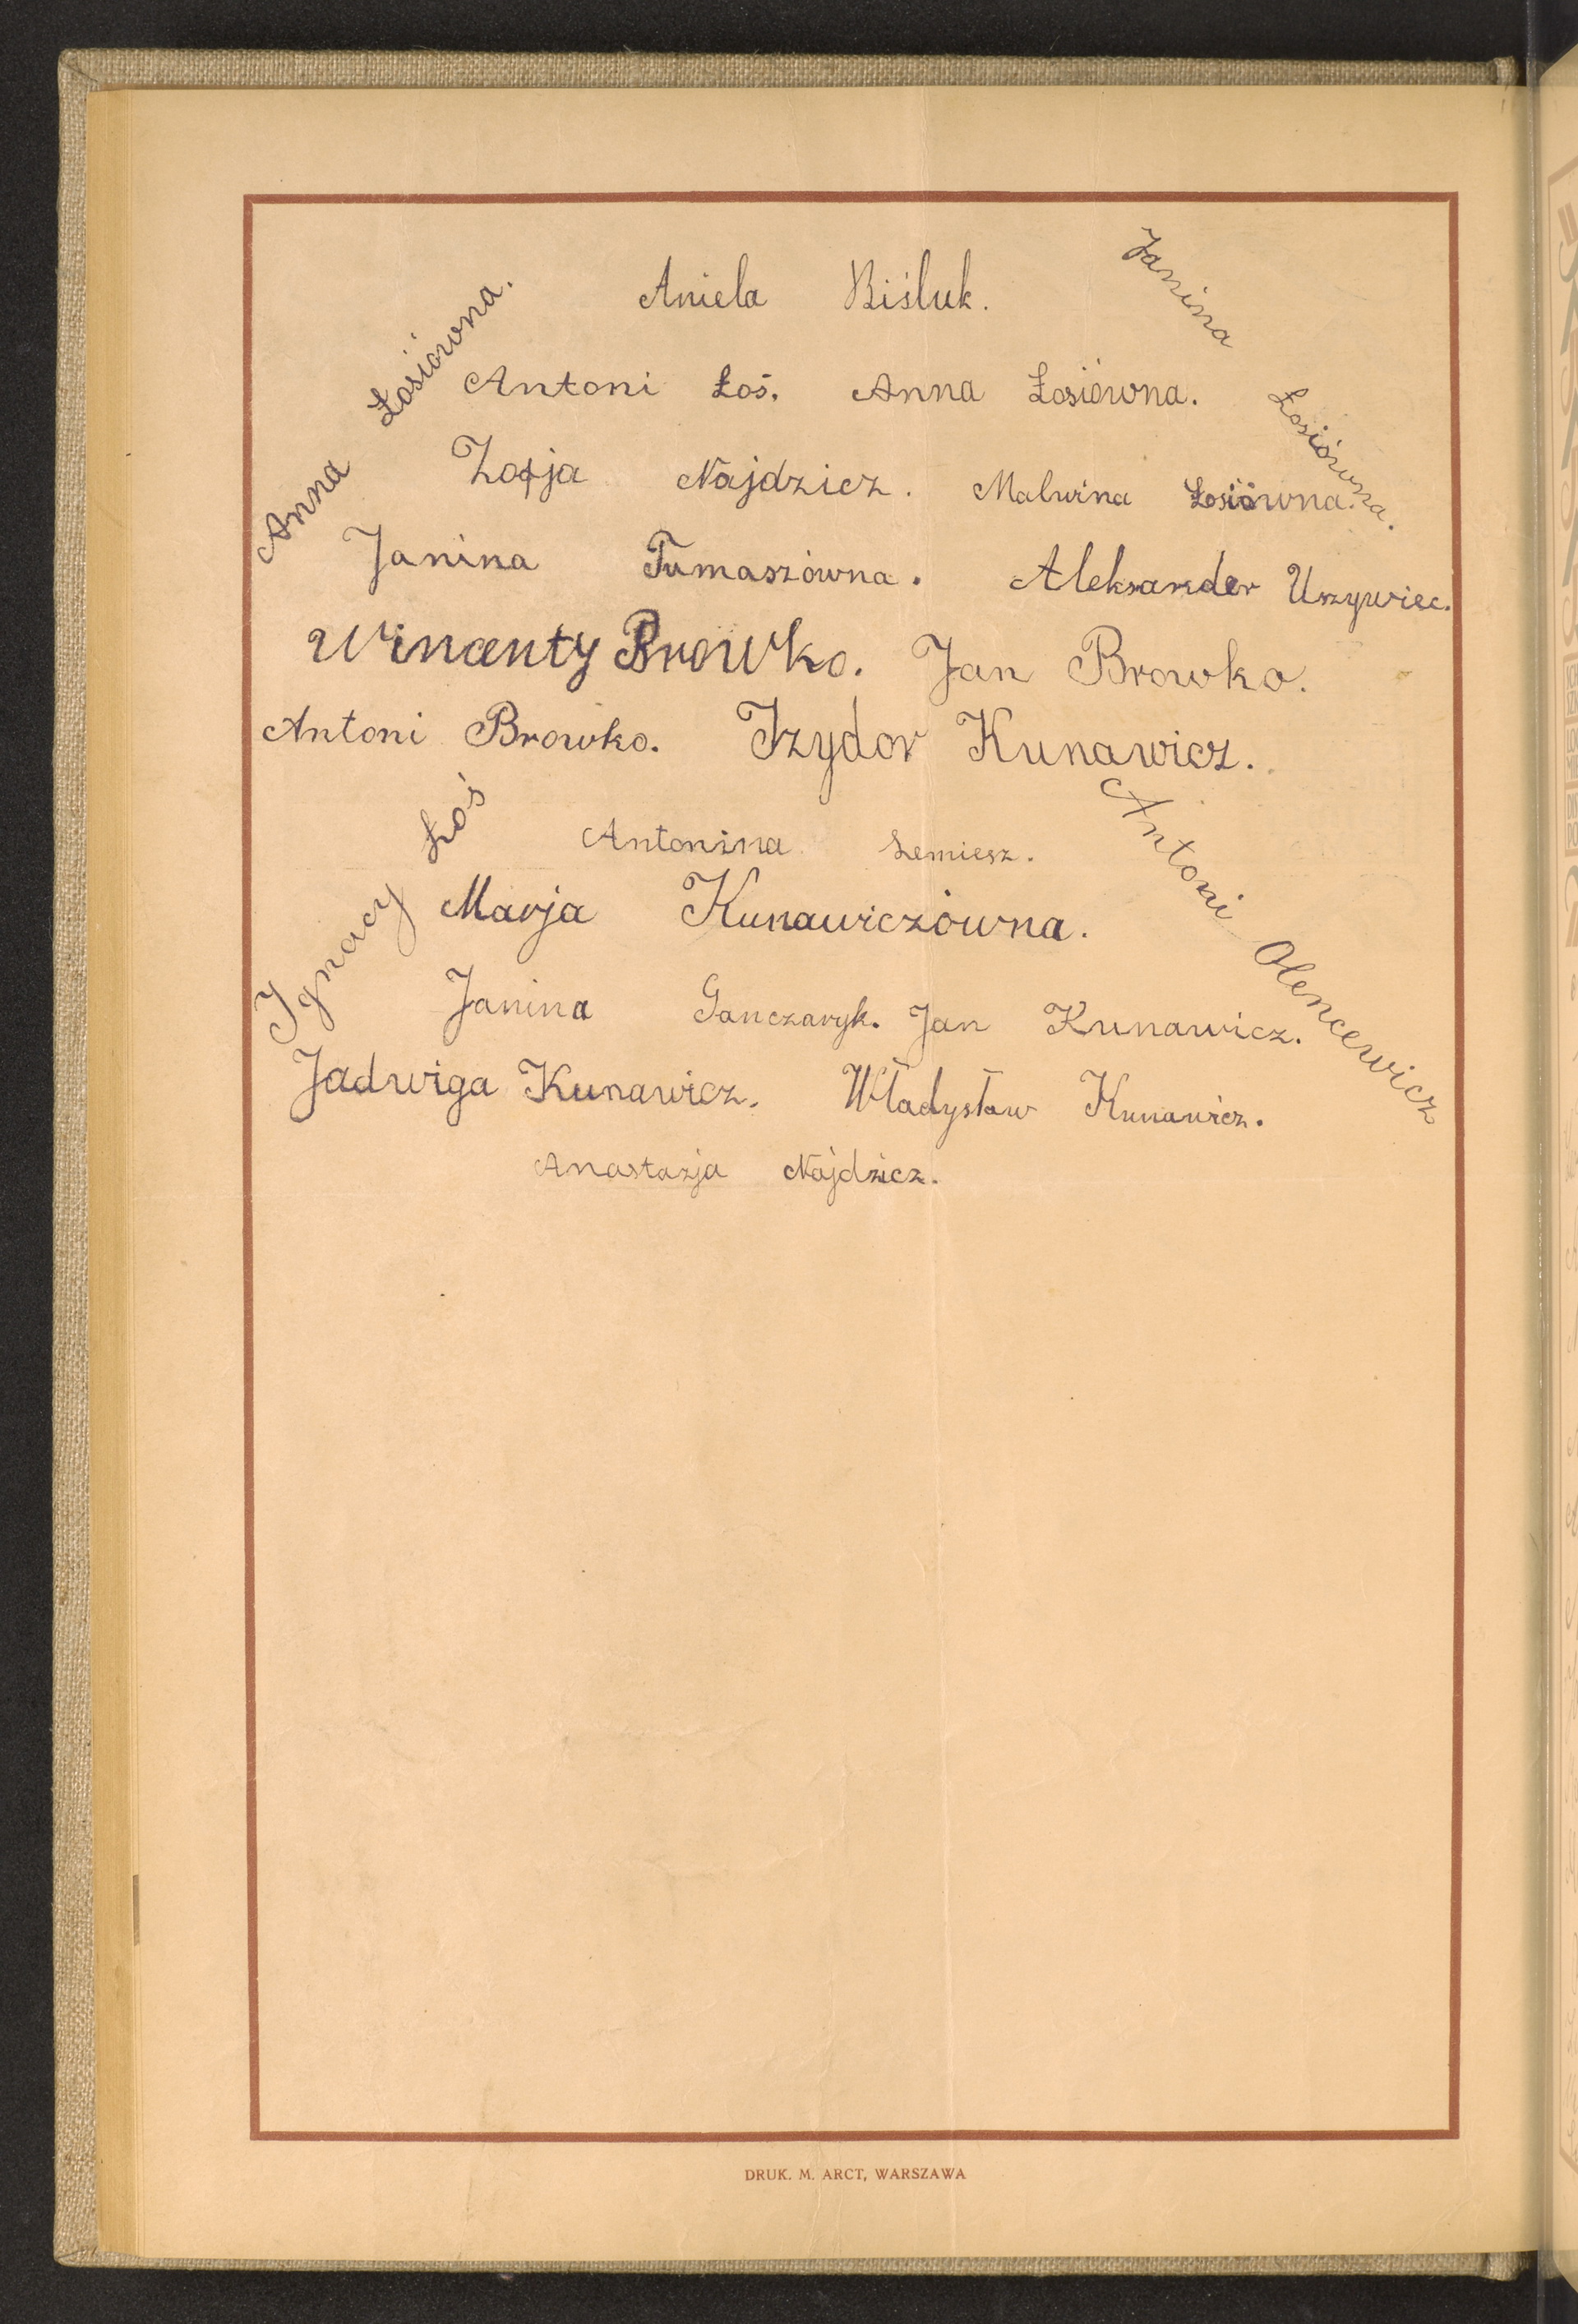 Aniela Biśluk.
Anna Łosiówna.
Janina Łosiówna.
Antoni Łoś. Anna Łosiówna.
Zofja Najdzicz. Malwina Łosiówna.
Janina Tumaszówna. Aleksander Uszywiec.
Wincenty Browko. Jan Browko.
Antoni Browko. Izydor Kunawicz.
Ignacy Łoś
Antoni Olencewicz
Antonina Łemiesz.
Marja Kunawiczówna.
Janina Ganczaryk. Jan Kunawicz.
Jadwiga Kunawicz. Władysław Kunawicz.
Anastazja Najdzicz.
DRUK. M. ARCT, WARSZAWA